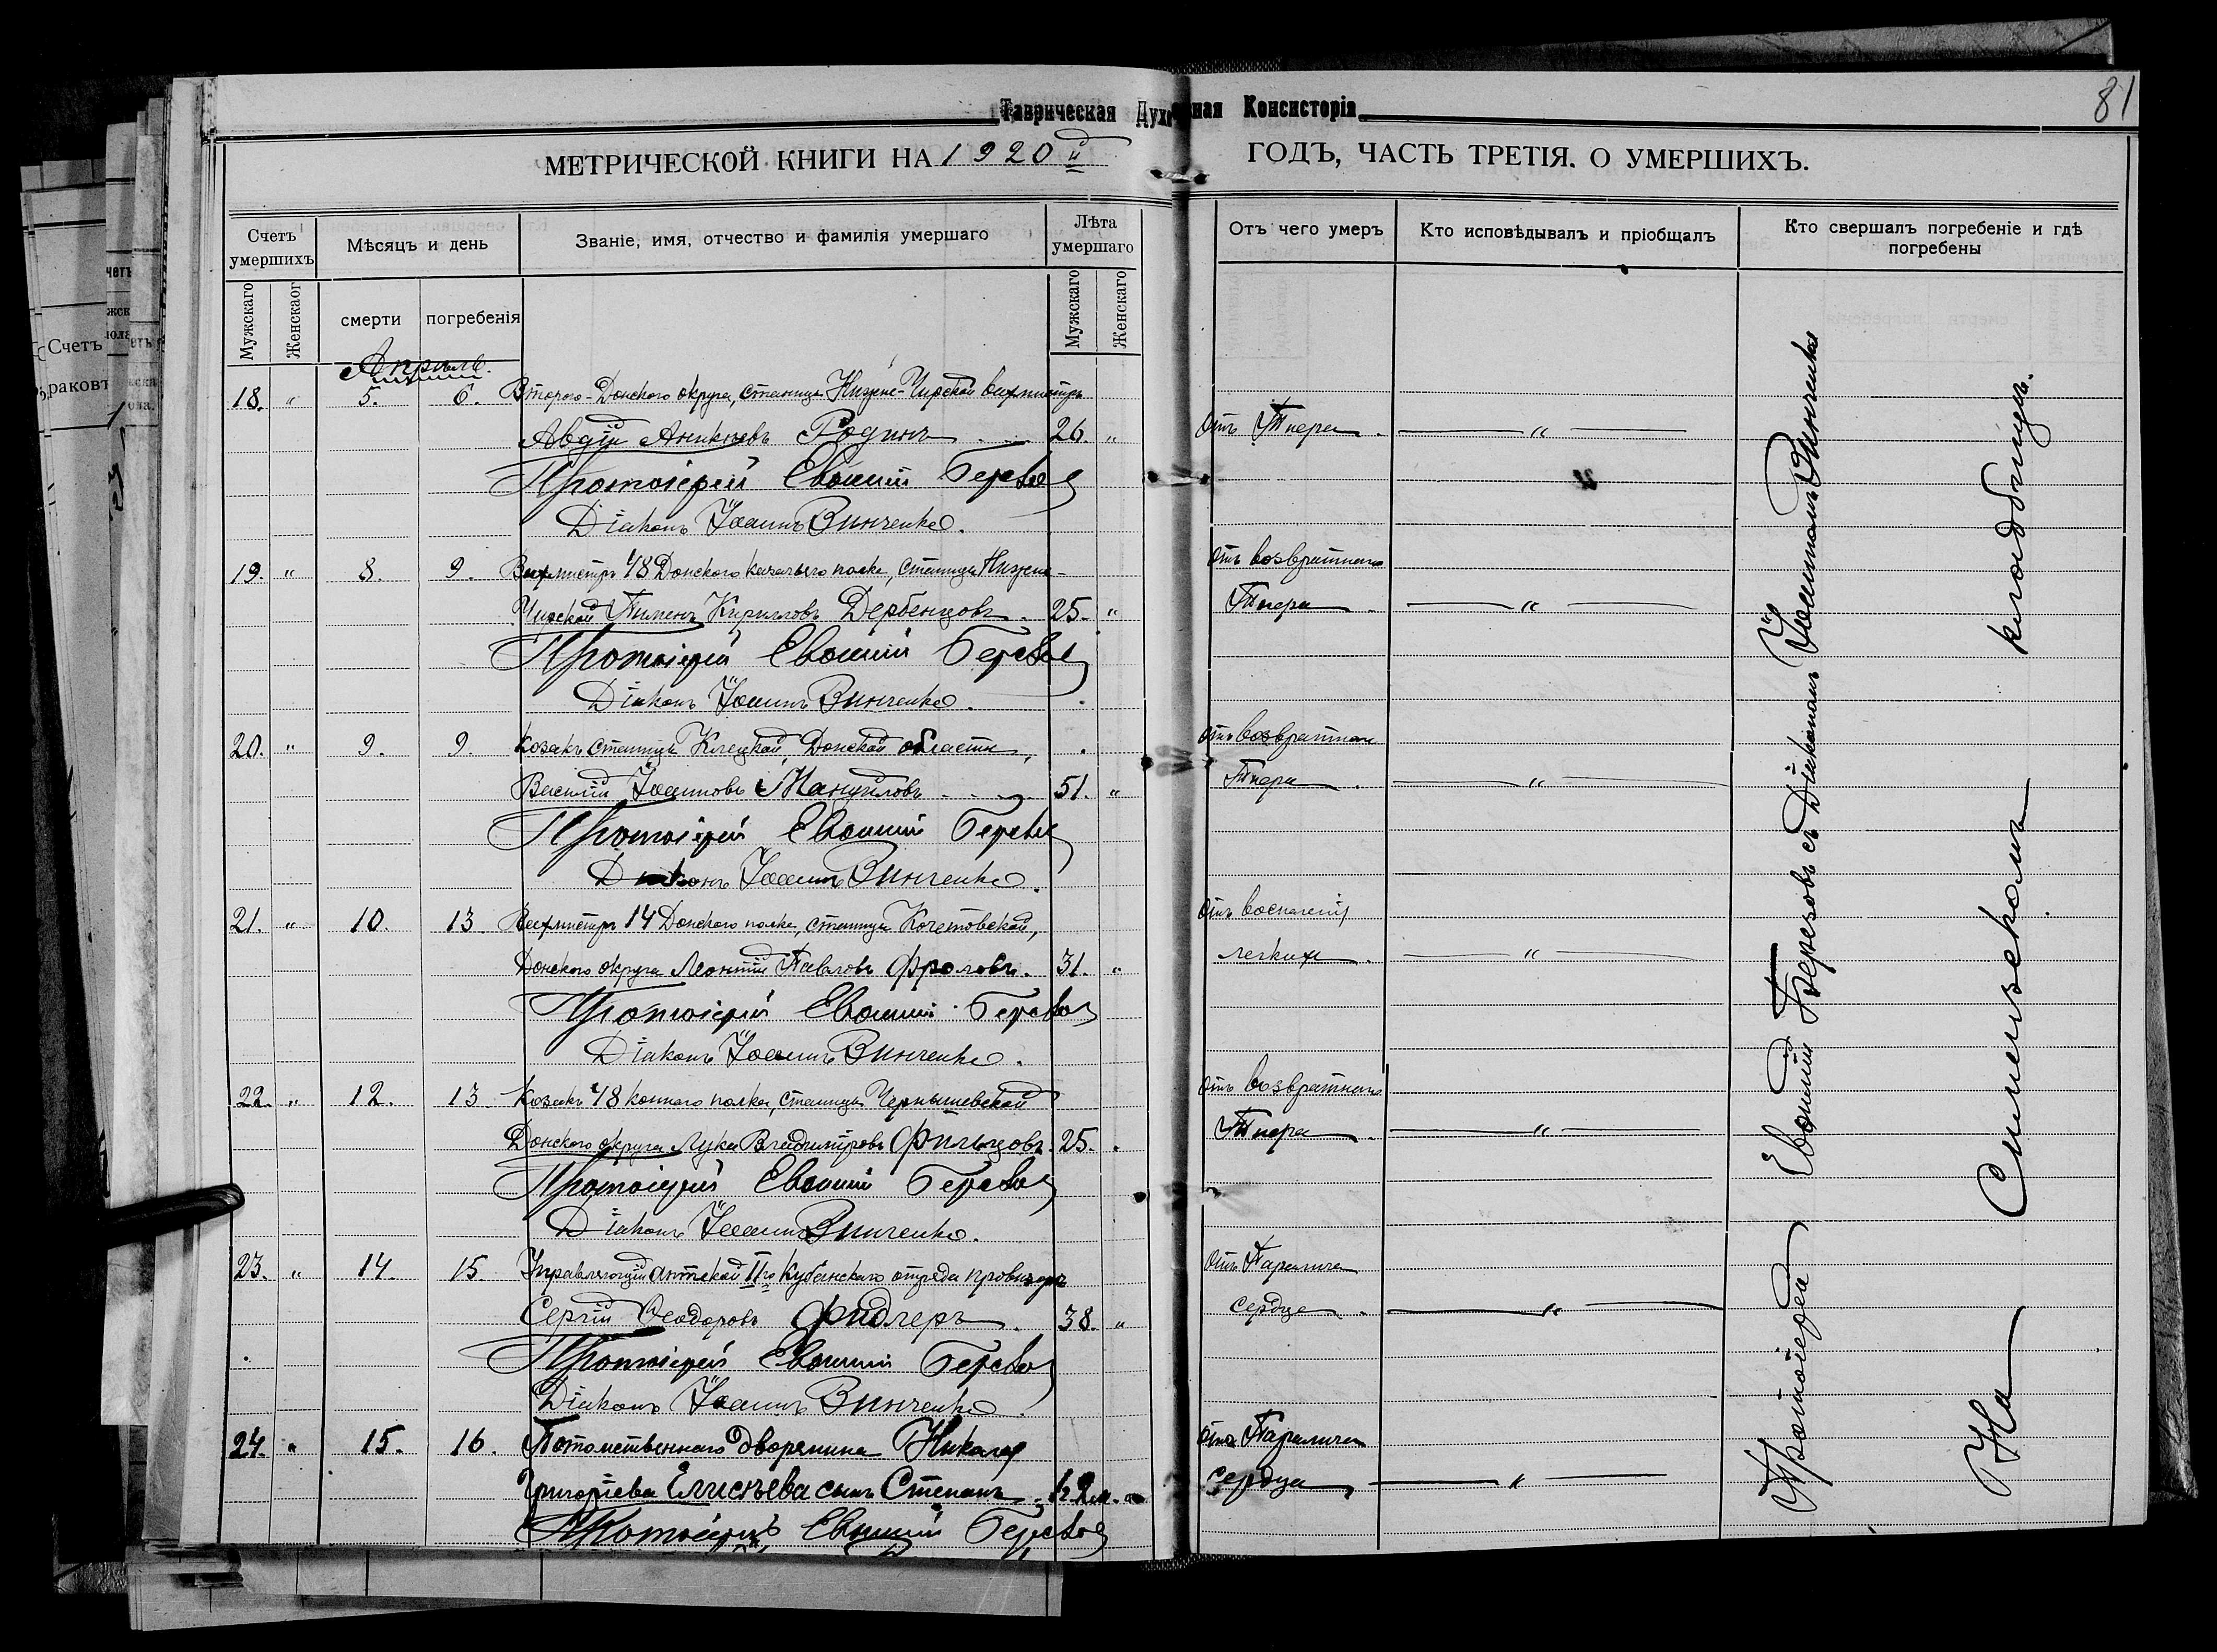 Таврическая Духовная Консисторія
81
МЕТРИЧЕСКОЙ КНИГИ НА 1920й ГОДЪ, ЧАСТЬ ТРЕТІЯ. О УМЕРШИХЪ.
Счетъ умершихъ
Мѣсяцъ и день
Званіе, имя, отчество и фамилія умершаго
Лѣта умершаго
Отъ чего умеръ
Кто исповѣдывалъ и пріобщалъ
Кто свершалъ погребеніе и гдѣ погребены
Мужскаго
Женскаог
смерти
погребенія
Мужскаго
Женскаго
Апрѣль.
18. „ 5. 6. Второго-Донского округа, станицы Нижне-Чирской вахмистръ
Авдій Аникіевъ Родинъ 26. „ отъ Тифа. — „ —
Протоіерей Евфимій Березов
Діаконъ Іоаннъ Винченко.
19. „ 8. 9. Вахмистръ 48 Донского казачьего полка, станицы Нижне-
отъ возвратнаго
Чирской Пименъ Кирилловъ Дербенцовъ. 25. „ Тифа. — „ —
Протоіерей Евфимій Березов
Діаконъ Іоаннъ Винченко.
20. „ 9. 9. Козакъ станицы Клецкой, Донской области,
отъ возвратнаго
Василій Іоанновъ Мануиловъ 51. „ Тифа. — „ —
Протоіерей Евфимій Березов
Діаконъ Іоаннъ Винченко.
21. „ 10. 13 Вахмистръ 14 Донского полка, станицы Кочетовской,
отъ воспаленія
Донского округа Леонтій Павловъ Фроловъ. 31. „ легкихъ. — „ —
Протоіерей Евфимій Березов
Діаконъ Іоаннъ Винченко.
22. „ 12. 13 Козакъ 48 коннаго полка, станицы Чернышевской
отъ возвратнаго
Донского округа Лука Владиміровъ Фильцовъ. 25. „ Тифа. — „ —
Протоіерей Евфимій Березов
Діаконъ Іоаннъ Винченко.
23. „ 14. 15 Управляющій аптекой IIго Кубанскаго отряда провизоръ
отъ Паралича
Сергій Ѳеодоровъ Фидлеръ. 38. „ сердца. — „ —
Протоіерей Евфимій Березов
Діаконъ Іоаннъ Винченко.
24. „ 15. 16. Потомственнаго дворянина Николая
отъ Паралича
Григоріева Елисѣева сынъ Степанъ сердца, — „ —
Протоіерей Евфимій Березов
Протоіерей Евфимій Березовъ съ Діакономъ Іоанномъ Винченко
На Синопскомъ кладбищѣ.
Счетъ
браковъ